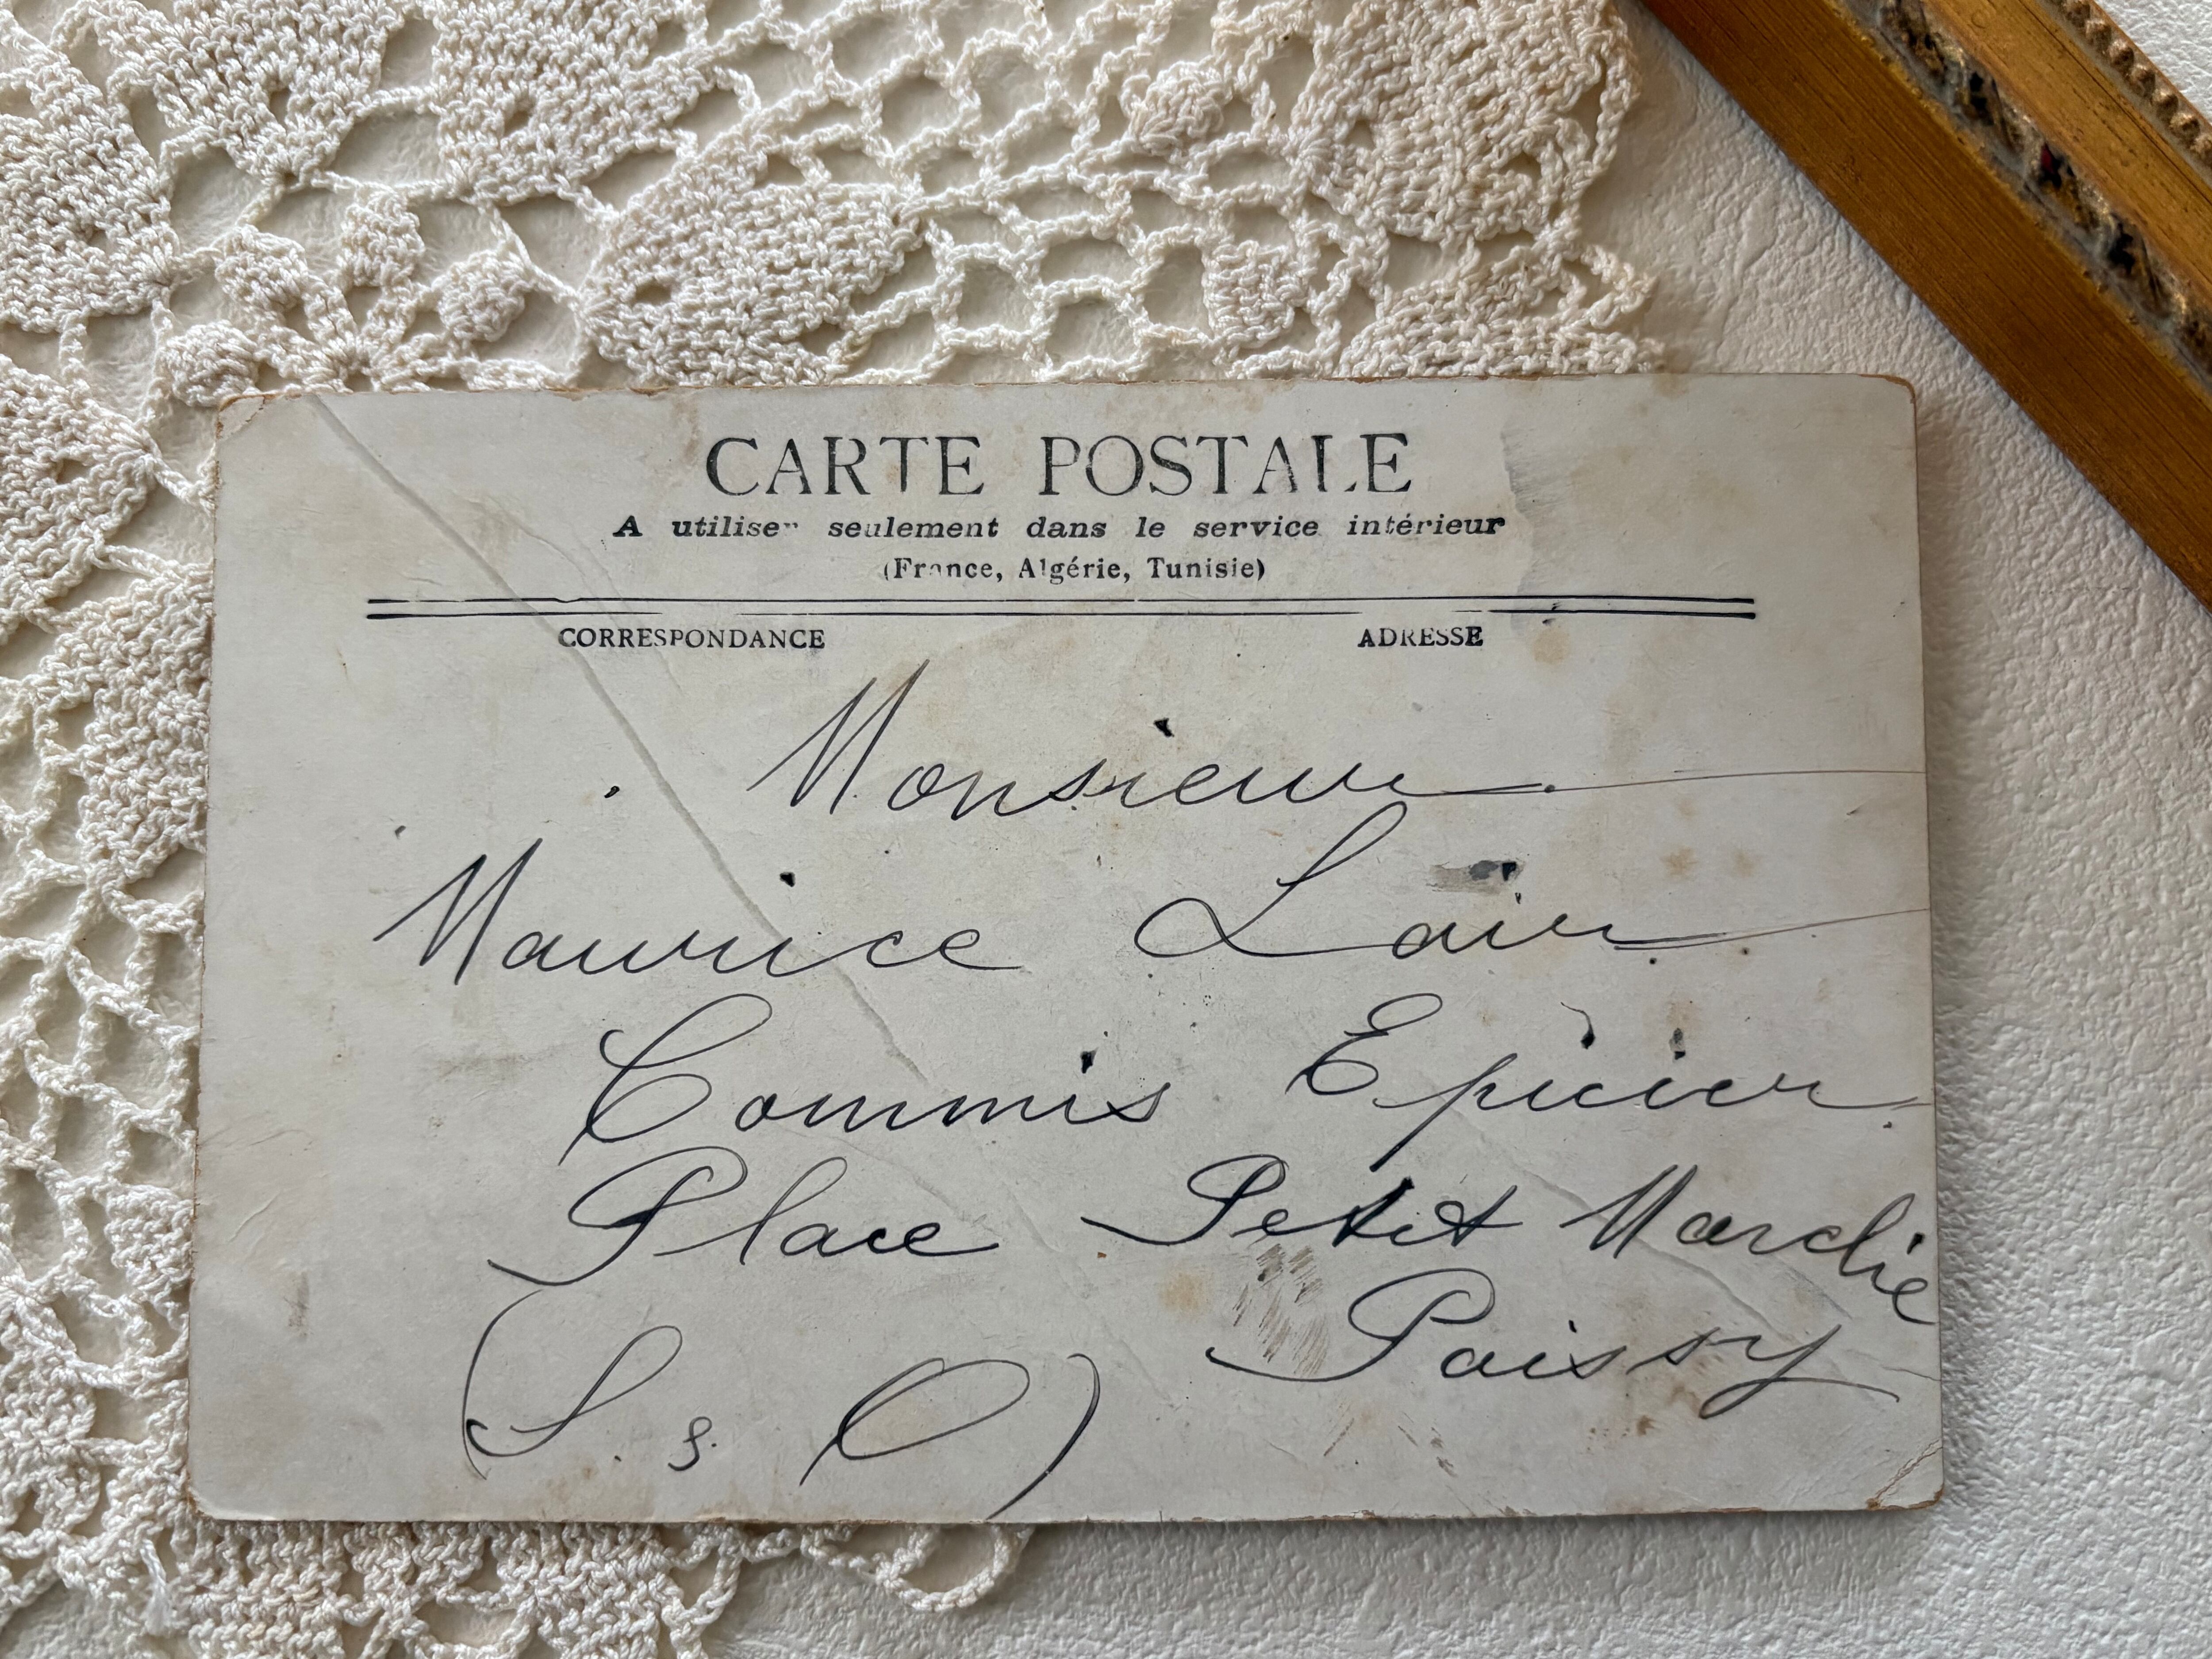 CARTE POSTALE
A utiliser seulement dans le service intérieur
(France, Algérie, Tunisie)
CORRESPONDANCE ADRESSE
Monsieur
Maurice Lair
Commis Epicier
Place Petit Marché
Poissy
(S. s. O)